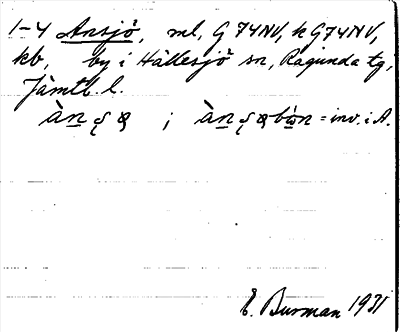 1-4 Ansjö, ml, G 74NV, k G74NV,
kb, by i Hällesjö sn, Ragunda tg,
Jämtl. l.
= inv. i A.
E. Burman 1931